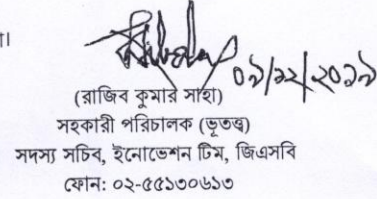 ।
০৯/১২/২০১৯
(রাজিব কুমার সাহা)
সহকারী পরিচালক (ভূতত্ত্ব)
সদস্য সচিব, ইনোভেশন টিম, জিএসবি
ফোন: ০২-৫৫১৩০৬১৩